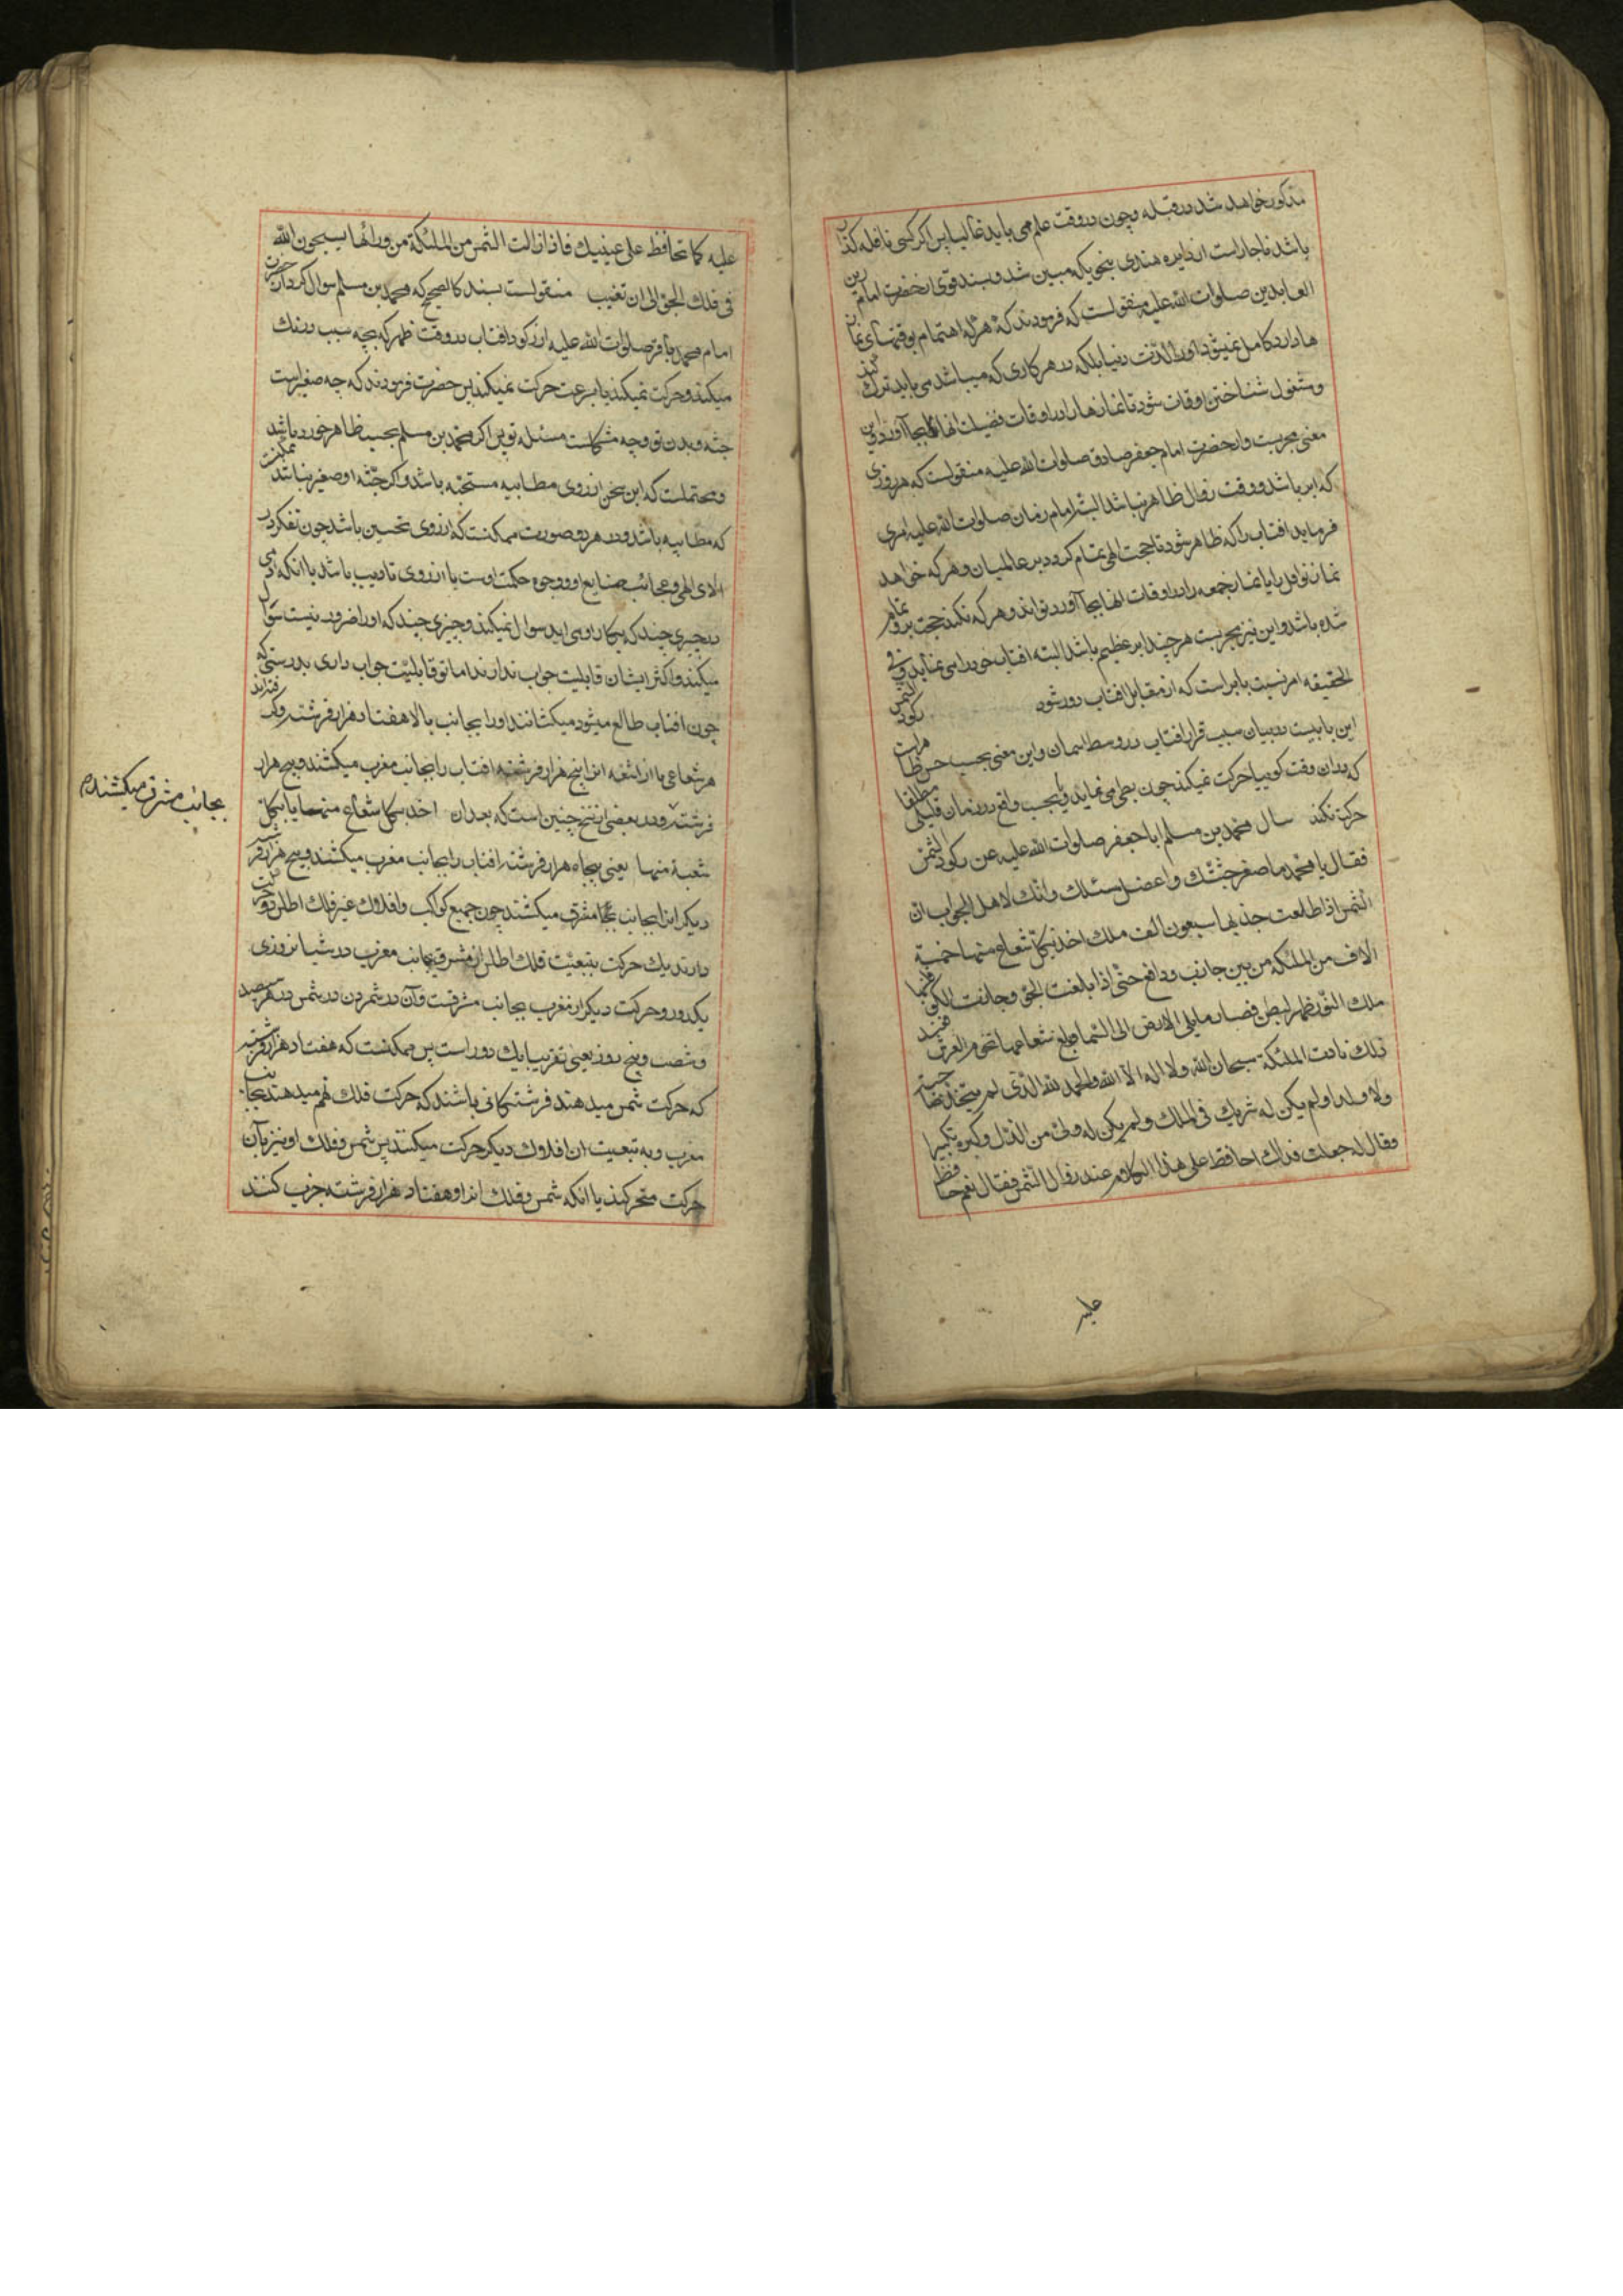 مذکور خواهد شد در قبله و چون در وقت علم می باید غالبا پس اگر کسی نافله گذار
باشد ناچار است از دایره هندی بنحوی که مبین شد و بسند قوی از حضرت امام زین
العابدین صلوات الله علیه منقولست که فرمودند که هر که اهتمام بوقتهای نماز
ها دارد کامل نمیشود او را لذت دنیا بلکه در هر کاری که میباشد می باید ترک کند
و مشغول شناختن اوقات شود تا نمازها را در اوقات فضیلت انها بجا آورد و این
معنی مجربست و از حضرت امام جعفر صادق صلوات الله علیه منقولست که هر روزی
که ابر باشد و وقت زوال ظاهر نباشد البته امام زمان صلوات الله علیه امری
فرماید افتاب را که ظاهر شود تا حجت الهی تمام کردد بر عالمیان و هر که خواهد
نماز نوافل را یا نماز جمعه را در اوقات انها بجا آورد تواند و هر که نکند حجت برو تمام
شده باشد و این نیز مجربست هر چند ابر عظیم باشد البته افتاب خود را می نماید و فی
الحقیقه امر نسبت بابر است که از مقابل افتاب دور شود رکود الشمس
این بابیست در بیان سبب قرار افتاب در وسط اسمان و این معنی بحسب حس ظاهر است
که بدان وقت کوییا حرکت نمیکند چون بطی می نماید و یا بحسب واقع در زمان قلیلی مطلقا
حرکت نکند سال محمد بن مسلم ابا جعفر صلوات الله علیه عن رکود الشمس
فقال یا محمد ما اصغر جثتک و اعضل مسئلتک وانک لاهل للجواب ان
الشمس اذا طلعت جذبها سبعون الف ملک اخذ بکل شعاع منها خمسة
الاف من الملئکة من بین جاذب و دافع حتی اذا بلغت الجو و جازت الکو قلبها
ملک النور ظهر لبطن فصار ما یلی الارض الی السما و بلغ شعاعها تخوم العرش فعند
ذلک نادت الملئکة سبحان الله ولا اله الا الله والحمد لله الذی لم یتخذ صاحبة
ولا ولدا ولم یکن له شریک فی الملک ولم یکن له ولی من الذل وکبره تکبیرا
وقال له جعلت فداک احافظ علی هذا الکلام عند زوال الشمس فقال نعم حافظ
علیه
علیه کما تحافظ علی عینیک فاذا زالت الشمس من الملئکة من ورائها یسبحون الله
فی فلک الجو الی ان تغیب منقولست بسند کالصحیح که محمد بن مسلم سوال کرد از حضرت
امام محمد باقر صلوات الله علیه از رکود افتاب در وقت ظهر که بچه سبب درنک
میکند و حرکت نمیکند یا بسرعت حرکت نمیکند پس حضرت فرمودند که چه صغیر است
جثه و بدن تو و چه مشکلست مسئله تو پس اکر محمد بن مسلم بحسب ظاهر خورد باشد ممکنست
و محتملست که این سخن از روی مطایبه مستحبه باشد و اکر جثه او صغیر نباشد
که مطایبه باشد و در هر دو صورت ممکنست که از روی تحسین باشد چون تفکر در
الای الهی و عجائب صنایع او و وجوه حکمت اوست یا از روی تادیب باشد با انکه ادمی
در چیزی چند که بکار او می اید سوال نمیکند و چیزی چند که او را ضرور نیست سوال
میکند و اکثر ایشان قابلیت جواب ندارند اما تو قابلیت جواب داری بدرستی که
چون افتاب طالع میشود میکشانند او را بجانب بالا هفتاد هزار فرشته و
هر شعاعی یا از اشعه انرا پنج هزار فرشته افتاب را بجانب مغرب میکشند و پنج هزار
فرشته و در بعضی از نسخ چنین است که بعد ان اخذ بکل شعاع منها یا بکل
شعبة منها یعنی پنجاه هزار فرشته افتاب را بجانب مغرب میکشند و پنج هزار فرشته
دیکر انرا بجانب مشرق میکشند چون جمیع کواکب و افلاک غیر فلک اطلس دو حرکت
دارند یک حرکت بتبعیت فلک اطلس از مشرق بجانب مغرب در شبانروزی
یکدور و حرکت دیکر از مغرب بجانب مشرقست و آن در شمردن در شمس در هر سیصد
و شصت و پنج روز یعنی تقریبا یک دور است پس ممکنست که هفتاد هزار فرشته
که حرکت شمس میدهند فرشتکانی باشند که حرکت فلک نهم میدهند بجانب
مغرب و به تبعیت ان افلاک دیکر حرکت میکنند پس شمس و فلک او نیز بآن
حرکت متحرکند یا انکه شمس و فلک او را هفتاد هزار فرشته جذب کنند
بجانب مشرق میکشند